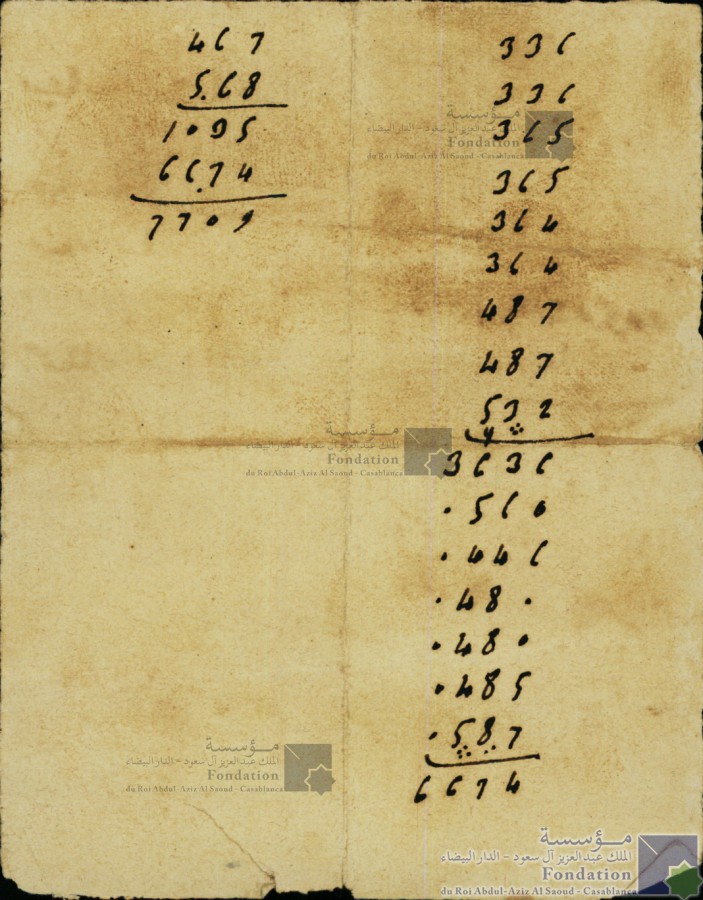 467
568
1035
6674
7709
336
336
365
365
364
364
487
487
532
3636
.560
.446
.48.
.480
.485
.587
6674
مؤسسة
الملك عبدالعزيز آل سعود - الدار البيضاء
Fondation
du Roi Abdul-Aziz Al Saoud - Casablanca
مؤسسة
الملك عبدالعزيز آل سعود - الدار البيضاء
Fondation
du Roi Abdul-Aziz Al Saoud - Casablanca
مؤسسة
الملك عبدالعزيز آل سعود - الدار البيضاء
Fondation
du Roi Abdul-Aziz Al Saoud - Casablanca
مؤسسة
الملك عبدالعزيز آل سعود - الدار البيضاء
Fondation
du Roi Abdul-Aziz Al Saoud - Casablanca